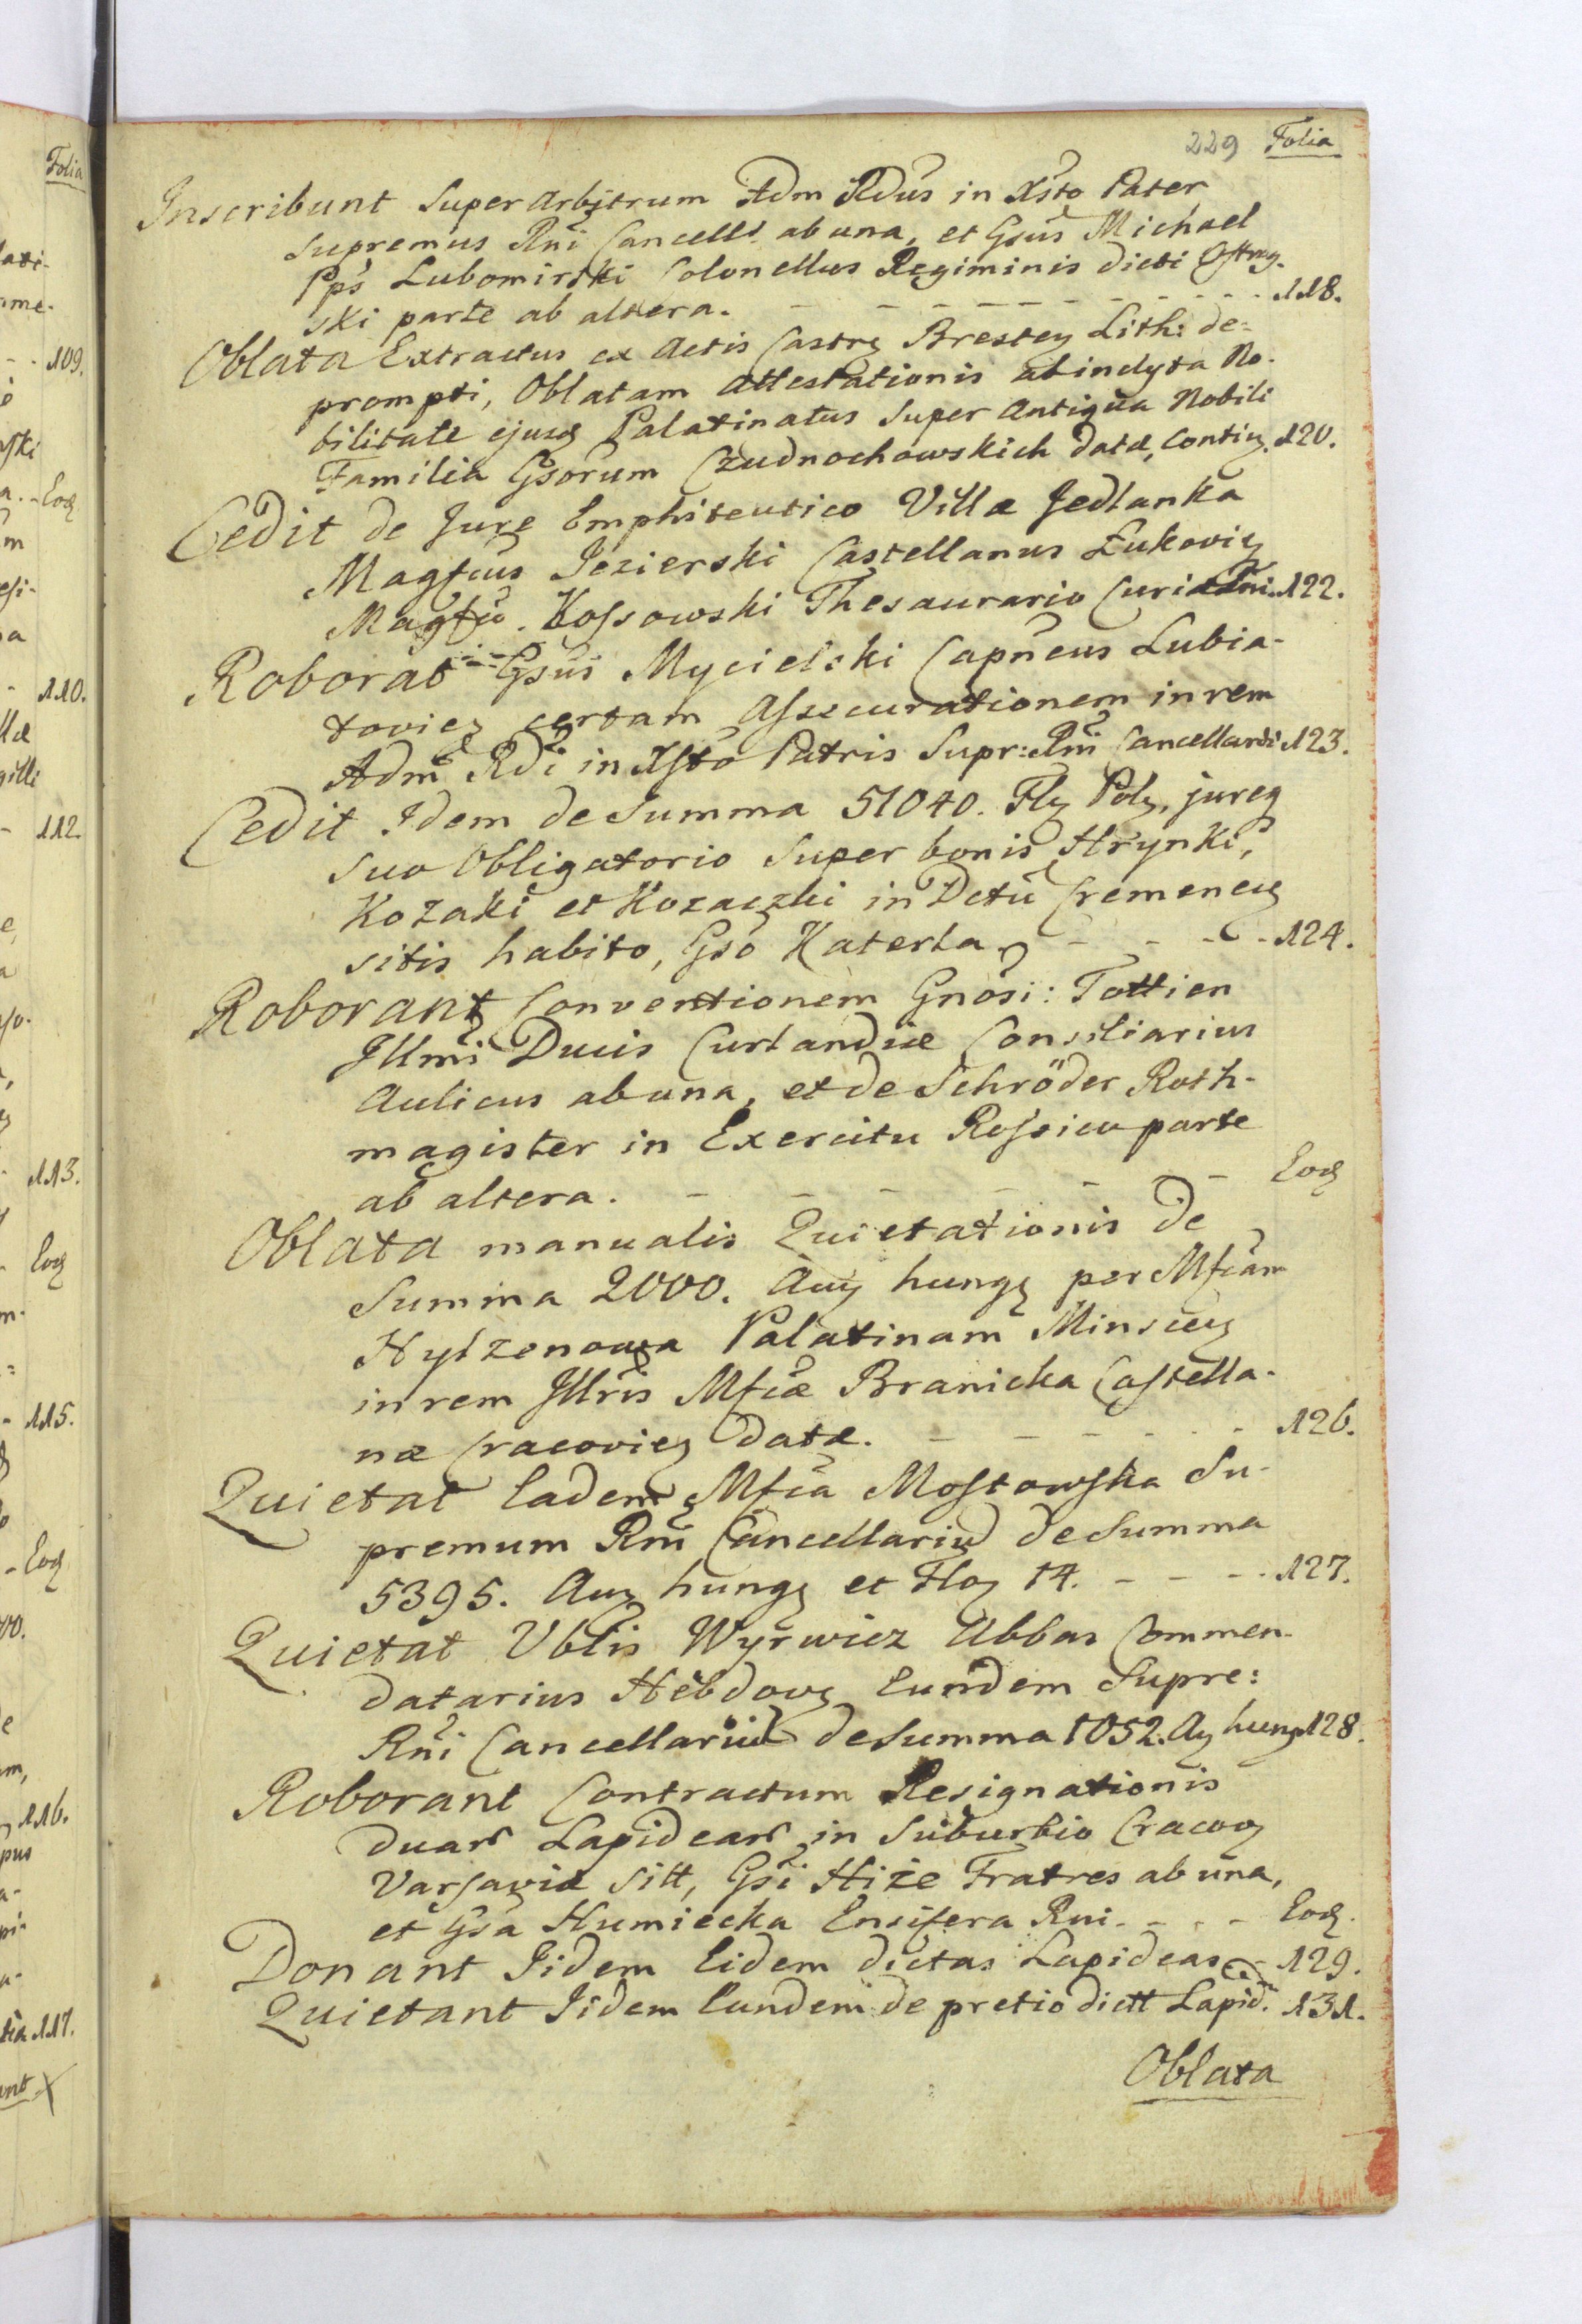 229 Folia
Inscribunt Super Arbitrum Adm Rdus in Xsto Pater
Supremus Rni Cancells ab una, et Gsus Michael
Pps Lubomirski Colonellus Regiminis dicti Ostrog-
ski parte ab altera. - - - - - - - - 118.
Oblata Extractus ex Actis Castrz Brestez Lith: de=
prompti, Oblatam Attestationis ab indyta No-
bilitate ejusq Palatinatus Super Antiqua Nobili
Familia Gsorum Czudnochowskich datæ, Contiz. 120.
Cedit de Jure Emphiteutico Villæ Jedlanka
Magfcus Jezierski Castellanus Łukoviz
Magfco. Kossowski Thesaurario Curiæ Rni. 122.
Roborat Gsus Mycielski Capneus Lubia-
toviez certam Assecurationem in rem
Adm Rdi in Xsto Patris Supr: Rni Cancellarii 123.
Cedit Idem de Summa 51040. Flz Polz. jureq
Suo Obligatorio Super bonis Hrynki,
Kozaki et Kozaczki in Dctu Cremenez
sitis habito, Gso Katerla - - - - 124.
Roborant Conventionem Gnosi: Tottien
Illmi Ducis Curlandiæ Consiliarius
Aulicus ab una, et de Schröder Roth-
magister in Exercitu Rossico parte
ab altera. - - - - - - Eod
Oblata manualis Quietationis de
Summa 2000. Auz hungz per Mfcam
Hylzenowa Palatinam Minscez
in rem Illris Mfcæ Branicka Castella-
næ Cracoviez datæ. - - - - - - 126.
Quietat Eadem Mfca Mostowska Su-
premum Rni Cancellariu de Summa
5395. Auz hungz et Floz 14. - - - - 127.
Quietat Vblis Wyrwicz Abbas Commen-
datarius Hebdovz Eundem Supre:
Rni Cancellariu de Summa 1052. Az hung 128.
Roborant Contractum Resignationis
duar Lapidear in Suburbio Cracoz
Varsaviæ Sitt, Gsi Hize Fratres ab una,
et Gsa Humiecka Ensifera Rni. - - - Eod.
Donant Iidem Eidem dictas Lapideas - 129.
Quietant Iidem Eundem de pretio dictt Lapid. 131.
Oblata
Folia
109.
Eod
110.
112.
113.
Eod
115.
Eod
116.
117.